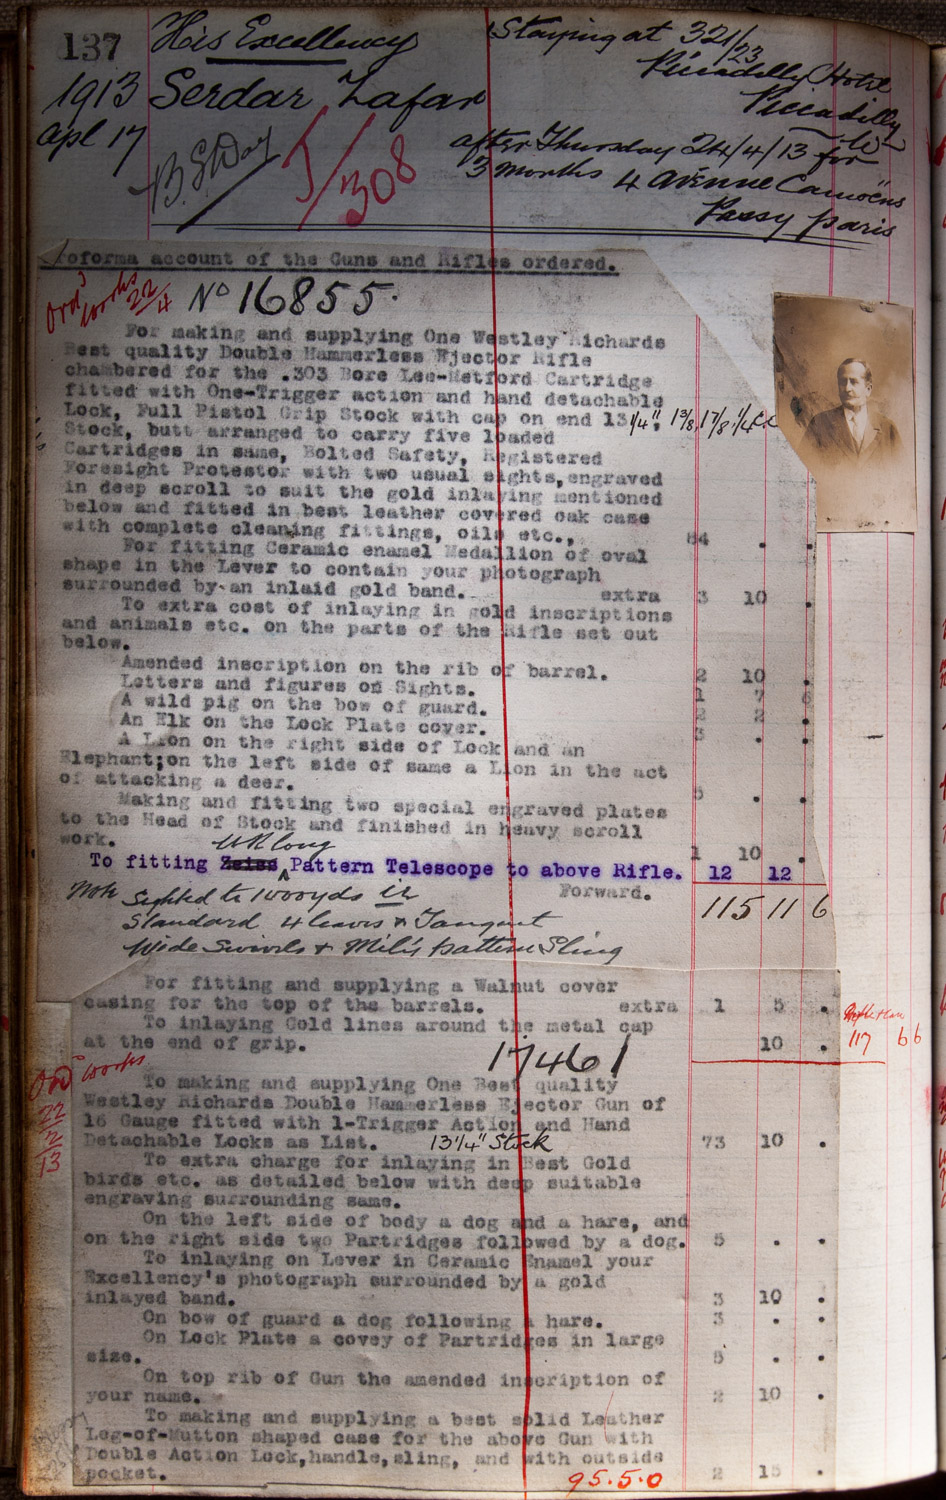 137
His Excellency
Staying at 321/23
Piccadilly Hotel
Piccadilly
1913 Serdar Zafar
Apl 17
B.S. Day
J/1308
after Thursday 24/4/13 for
3 months 4 avenue Camoëns
Passy Paris
roforma account of the Guns and Rifles ordered.
Ord'd Works 22/4
No 16855.
For making and supplying One Westley Richards
Best quality Double Hammerless Ejector Rifle
chambered for the .303 Bore Lee-Metford Cartridge
fitted with One-Trigger action and hand detachable
Lock, Full Pistol Grip Stock with cap on end 13 1/4", 1 3/8, 1 7/8 1/4
Stock, butt arranged to carry five loaded
Cartridges in same, Bolted Safety, Registered
Foresight Protestor with two usual sights, engraved
in deep scroll to suit the gold inlaying mentioned
below and fitted in best leather covered oak case
with complete cleaning fittings, oils etc., 84 . .
For fitting Ceramic enamel Medallion of oval
shape in the Lever to contain your photograph
surrounded by an inlaid gold band. extra 3 10 .
To extra cost of inlaying in gold inscriptions
and animals etc. on the parts of the Rifle set out
below.
Amended inscription on the rib of barrel. 2 10 .
Letters and figures on Sights. 1 7 6
A wild pig on the bow of guard. 2 2 .
An Elk on the Lock Plate cover. 3 . .
A Lion on the right side of Lock and an
Elephant;on the left side of same a Lion in the act
of attacking a deer. 5 . .
Making and fitting two special engraved plates
to the Head of Stock and finished in heavy scroll
work. 1 10 .
WR Long
To fitting Zeiss Pattern Telescope to above Rifle. 12 12
Forward. 115 11 6
Note Sighted to 1000yds in
Standard 4 leaves & Tangent
Wide Swivels & Mil'y pattern Sling
For fitting and supplying a Walnut cover
casing for the top of the barrels. extra 1 5 .
To inlaying Gold lines around the metal cap
at the end of grip. 10 .
117 6 6
17461
Ord Works
22
2
13
To making and supplying One Best quality
Westley Richards Double Hammerless Ejector Gun of
16 Gauge fitted with 1-Trigger Action and Hand
Detachable Locks as List. 13 1/4" Stock 73 10 .
To extra charge for inlaying in Best Gold
birds etc. as detailed below with deep suitable
engraving surrounding same.
On the left side of body a dog and a hare, and
on the right side two Partridges followed by a dog. 5 . .
To inlaying on Lever in Ceramic Enamel your
Excellency's photograph surrounded by a gold
inlayed band. 3 10 .
On bow of guard a dog following a hare. 3 . .
On Lock Plate a covey of Partridges in large
size. 5 . .
On top rib of Gun the amended inscription of
your name. 2 10 .
To making and supplying a best solid Leather
Leg-of-Mutton shaped case for the above Gun with
Double Action Lock,handle,sling, and with outside
pocket. 2 15 .
95.5.0